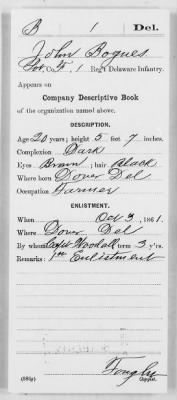 B 1 Del.
John Bogues
Pvt., Co. F, 1 Reg't Delaware Infantry.
Appears on
Company Descriptive Book
of the organization named above.
DESCRIPTION.
Age 20 years; height 5 feet 7 inches.
Complexion Dark
Eyes Brown; hair Black
Where born Dover Del
Occupation Farmer
ENLISTMENT.
When Oct 3, 1861.
Where Dover Del
By whom Capt Woodall term 3 y'rs.
Remarks: 1st Enlistment
(383g) Copyist.